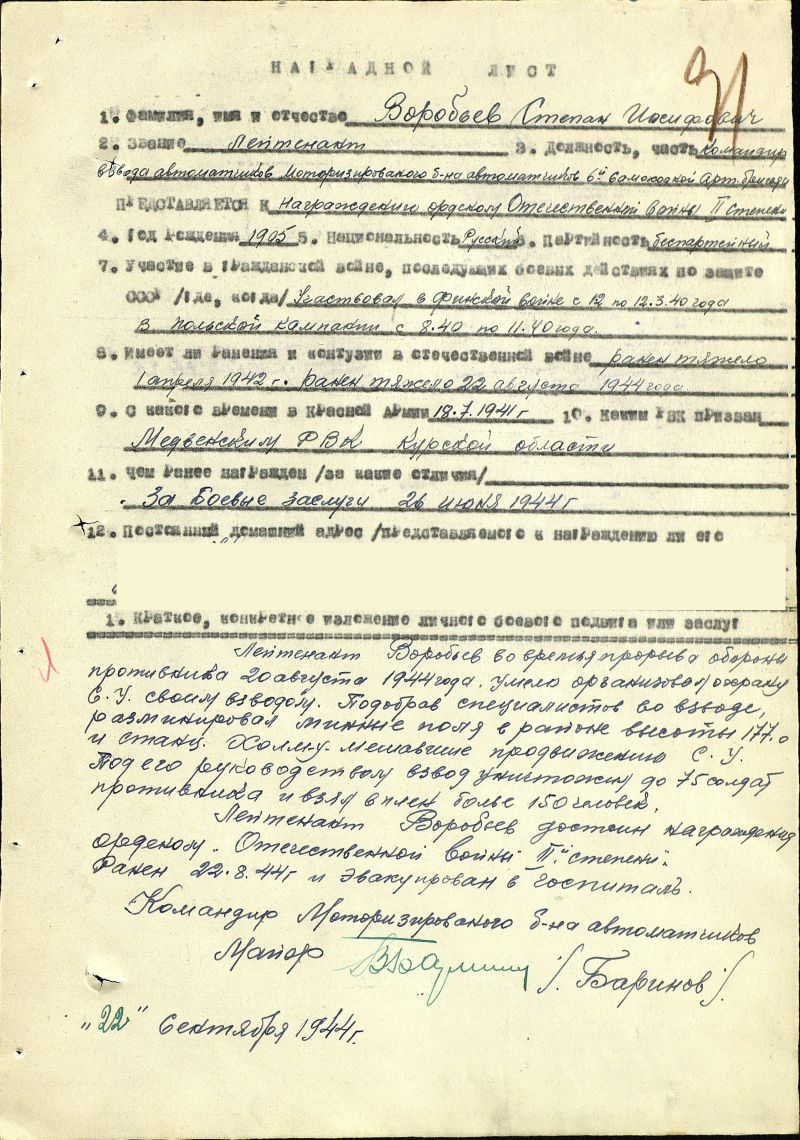 НАГРАДНОЙ ЛИСТ
31
1. Фамилия, имя и отчество Воробьев Степан Иосифович
2. Звание Лейтенант 3. Должность, часть командир
взвода автоматчиков Моторизированого б-на автоматчиков 6й самоходной Арт. бригады
ПРЕДСТАВЛЯЕТСЯ К награждению орденом Отечественной войны II степени
4. Год рождения 1905 5. Национальность Русский 6. Партийность беспартейный
7. Участие в гражданской войне, последующих боевых действиях по защите
СССР /где, когда/ Участвовал в финской войне с 12 по 12.3.40 года
в польской кампании с 8.40 по 11.40 года.
8. Имеет ли ранения и контузии в отечественной войне ранен тяжело
1 апреля 1942 г. ранен тяжело 22 августа 1944 года
9. С какого времени в Красной Армии 18.7.1941 г 10. Каким РВК призван
Медвенским РВК Курской области
11. Чем ранее награжден /за какие отличия/
За боевые заслуги 26 июня 1944 г
12. Постоянный домашний адрес /представляемого к награждению ли его
1. Краткое, конкретное изложение личного боевого подвига или заслуг
Лейтенант Воробьев во время прорыва обороны
противника 20 августа 1944 года. умело организовал охрану
С.У. своим взводом. Подобрав специалистов во взводе,
разминировал минные поля в районе высоты 177.0
и станц. Холму. мешавшие продвижению С.У.
Под его руководством взвод уничтожил до 75 солдат
противника и взял в плен более 150 человек.
Лейтенант Воробьев достоин награждения
орденом. Отечественной войны II "степени".
Ранен 22.8.44г и эвакуирован в госпиталь.
Командир Моторизированого б-на автоматчиков
Майор /Баринов/.
"22" Сентября 1944 г.